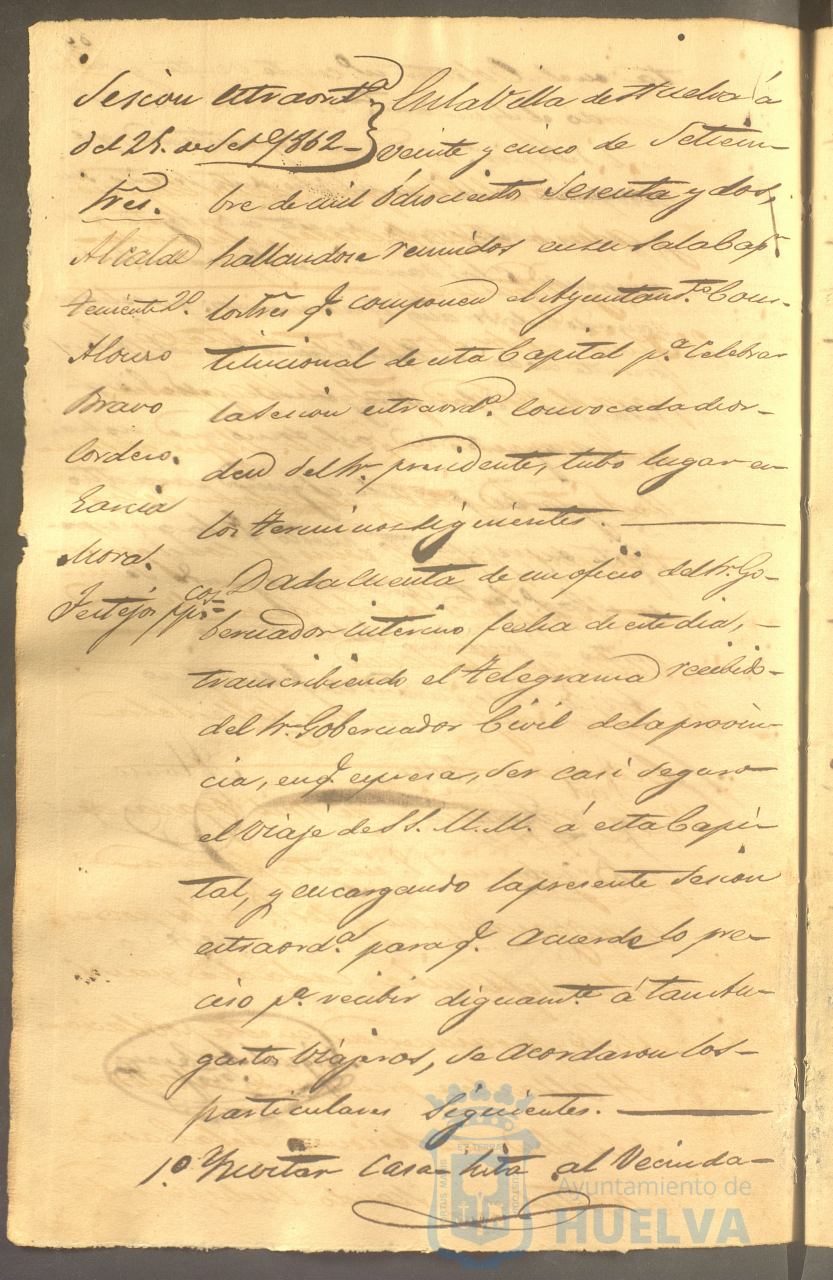 Sesion extraord.ª
del 25. de Set.e 1862-
Sres.
Alcalde
Teniente 2.º
Alonso
Bravo
Cordero.
Garcia
Mora.
Festejos ppcos
En la Villa de Huelva á
veinte y cinco de Setiem-
bre de mil ochocientos Sesenta y dos,
hallandose reunidos en su Sala Cap.r
los Sres q.e componen el Ayuntam.to Cons-
titucional de esta Capital p.ª celebrar
la Sesion extraord.ª convocada de or-
den del Sr. presidente, tubo lugar en
los terminos siguientes.
Dada Cuenta de un oficio del Sr. Go-
bernador interino fecha de este dia, -
transcribiendo el telegrama recibido
del Sr. Gobernador Civil de la provin-
cia, en q.e expresa, ser casi seguro
el viaje de SS. M.M. á esta Capi-
tal, y encargando la presente Sesion
extraord.ª para q.e acuerde lo pre-
ciso p.ª recibir dignam.te á tan Au-
gustos Viajeros, se acordaron los-
particulares siguientes.
1.º Invitar casa-hita al Vecinda-
Ayuntamiento de
HUELVA